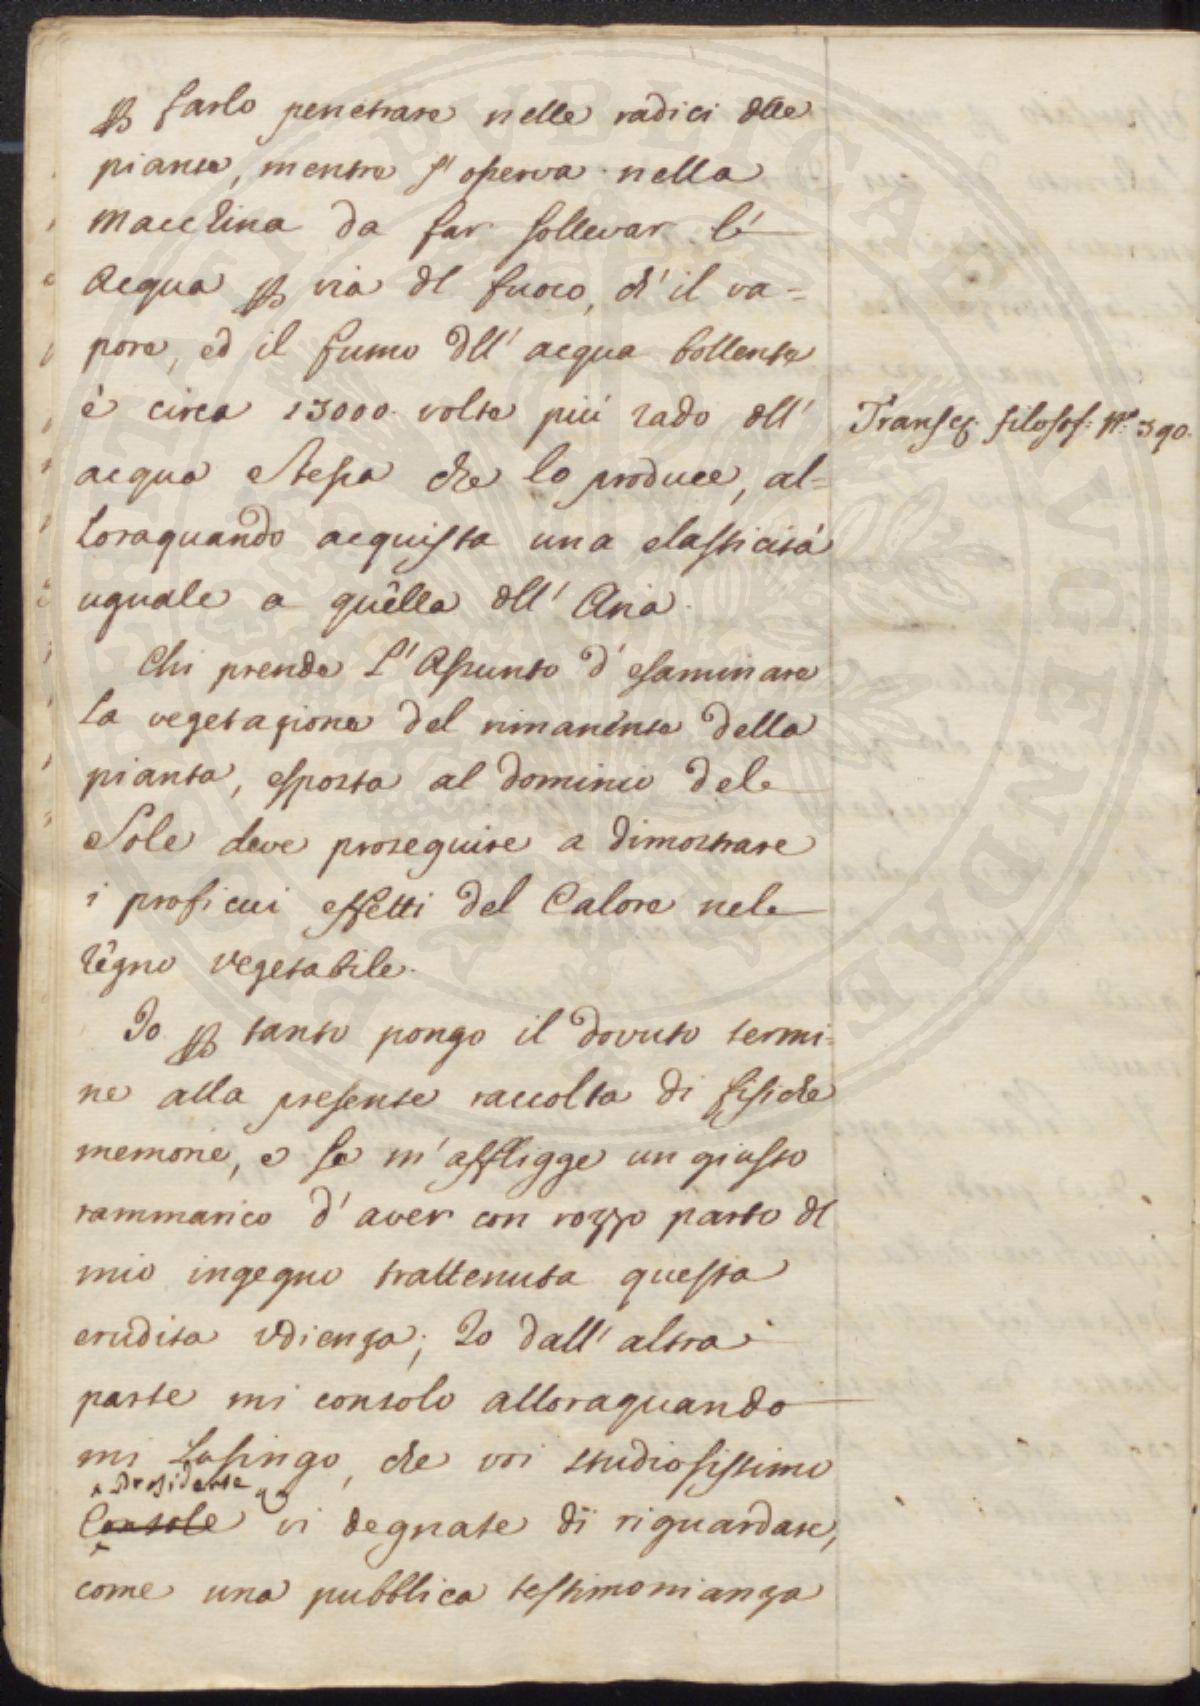 ꝑ farlo penetrare nelle radici dlle
piante, mentre s'osserva nella
macchina da far sollevar l'
Acqua ꝑ via dl fuoco, ch'il va=
pore, ed il fumo dll' acqua bollente
è circa 13000. volte più rado dll'
acqua stessa che lo produce, al=
loraquando acquista una elasticità
uguale a quella dll' Aria.
Transaz. filosof: N.º 390.
Chi prende l'Assunto d'esaminare
la vegetazione del rimanente della
pianta, esposta al dominio del
Sole deve proseguire a dimostrare
i proficui effetti del Calore nel
regno vegetabile.
Io ꝑ tanto pongo il dovuto termi=
ne alla presente raccolta di fisiche
memorie, e se m'affligge un giusto
rammarico d'aver con rozzo parto dl
mio ingegno trattenuta questa
erudita Udienza; Io dall'altra
parte mi consolo alloraquando
mi lusingo, che voi studiosissimo
Presidente
Console vi degnate di riguardare,
come una pubblica testimonianza